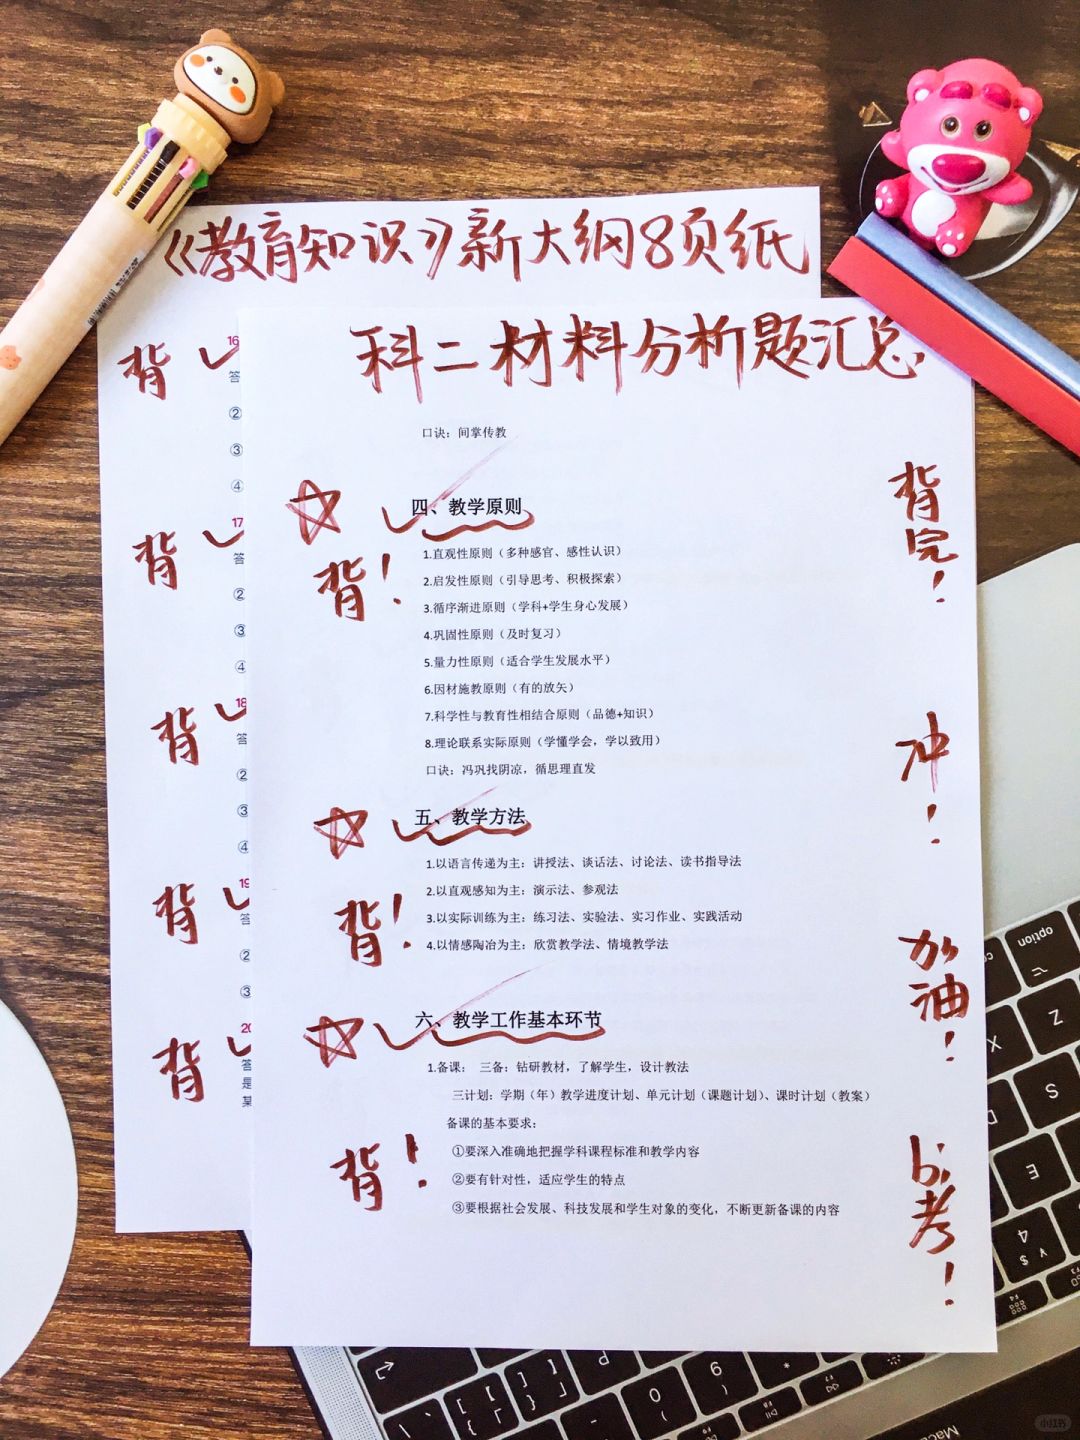 《教育知识》新大纲8页纸
科二材料分析题汇总
背
16
答
②
③
④
背
17
答
②
③
④
背
18
答
②
③
④
背
19
答
②
③
背
20
答
是
某
口诀：间掌传教
四、教学原则
背！
1.直观性原则（多种感官、感性认识）
2.启发性原则（引导思考、积极探索）
3.循序渐进原则（学科+学生身心发展）
4.巩固性原则（及时复习）
5.量力性原则（适合学生发展水平）
6.因材施教原则（有的放矢）
7.科学性与教育性相结合原则（品德+知识）
8.理论联系实际原则（学懂学会，学以致用）
口诀：冯巩找阴凉，循思理直发
五、教学方法
背！
1.以语言传递为主：讲授法、谈话法、讨论法、读书指导法
2.以直观感知为主：演示法、参观法
3.以实际训练为主：练习法、实验法、实习作业、实践活动
4.以情感陶冶为主：欣赏教学法、情境教学法
六、教学工作基本环节
背！
1.备课： 三备：钻研教材，了解学生，设计教法
三计划：学期（年）教学进度计划、单元计划（课题计划）、课时计划（教案）
备课的基本要求：
①要深入准确地把握学科课程标准和教学内容
②要有针对性，适应学生的特点
③要根据社会发展、科技发展和学生对象的变化，不断更新备课的内容
背完！
冲！
加油！
bi考！
option
Z
X
S
D
E
4
$
¥
F3
F4
P
0
9
小红书